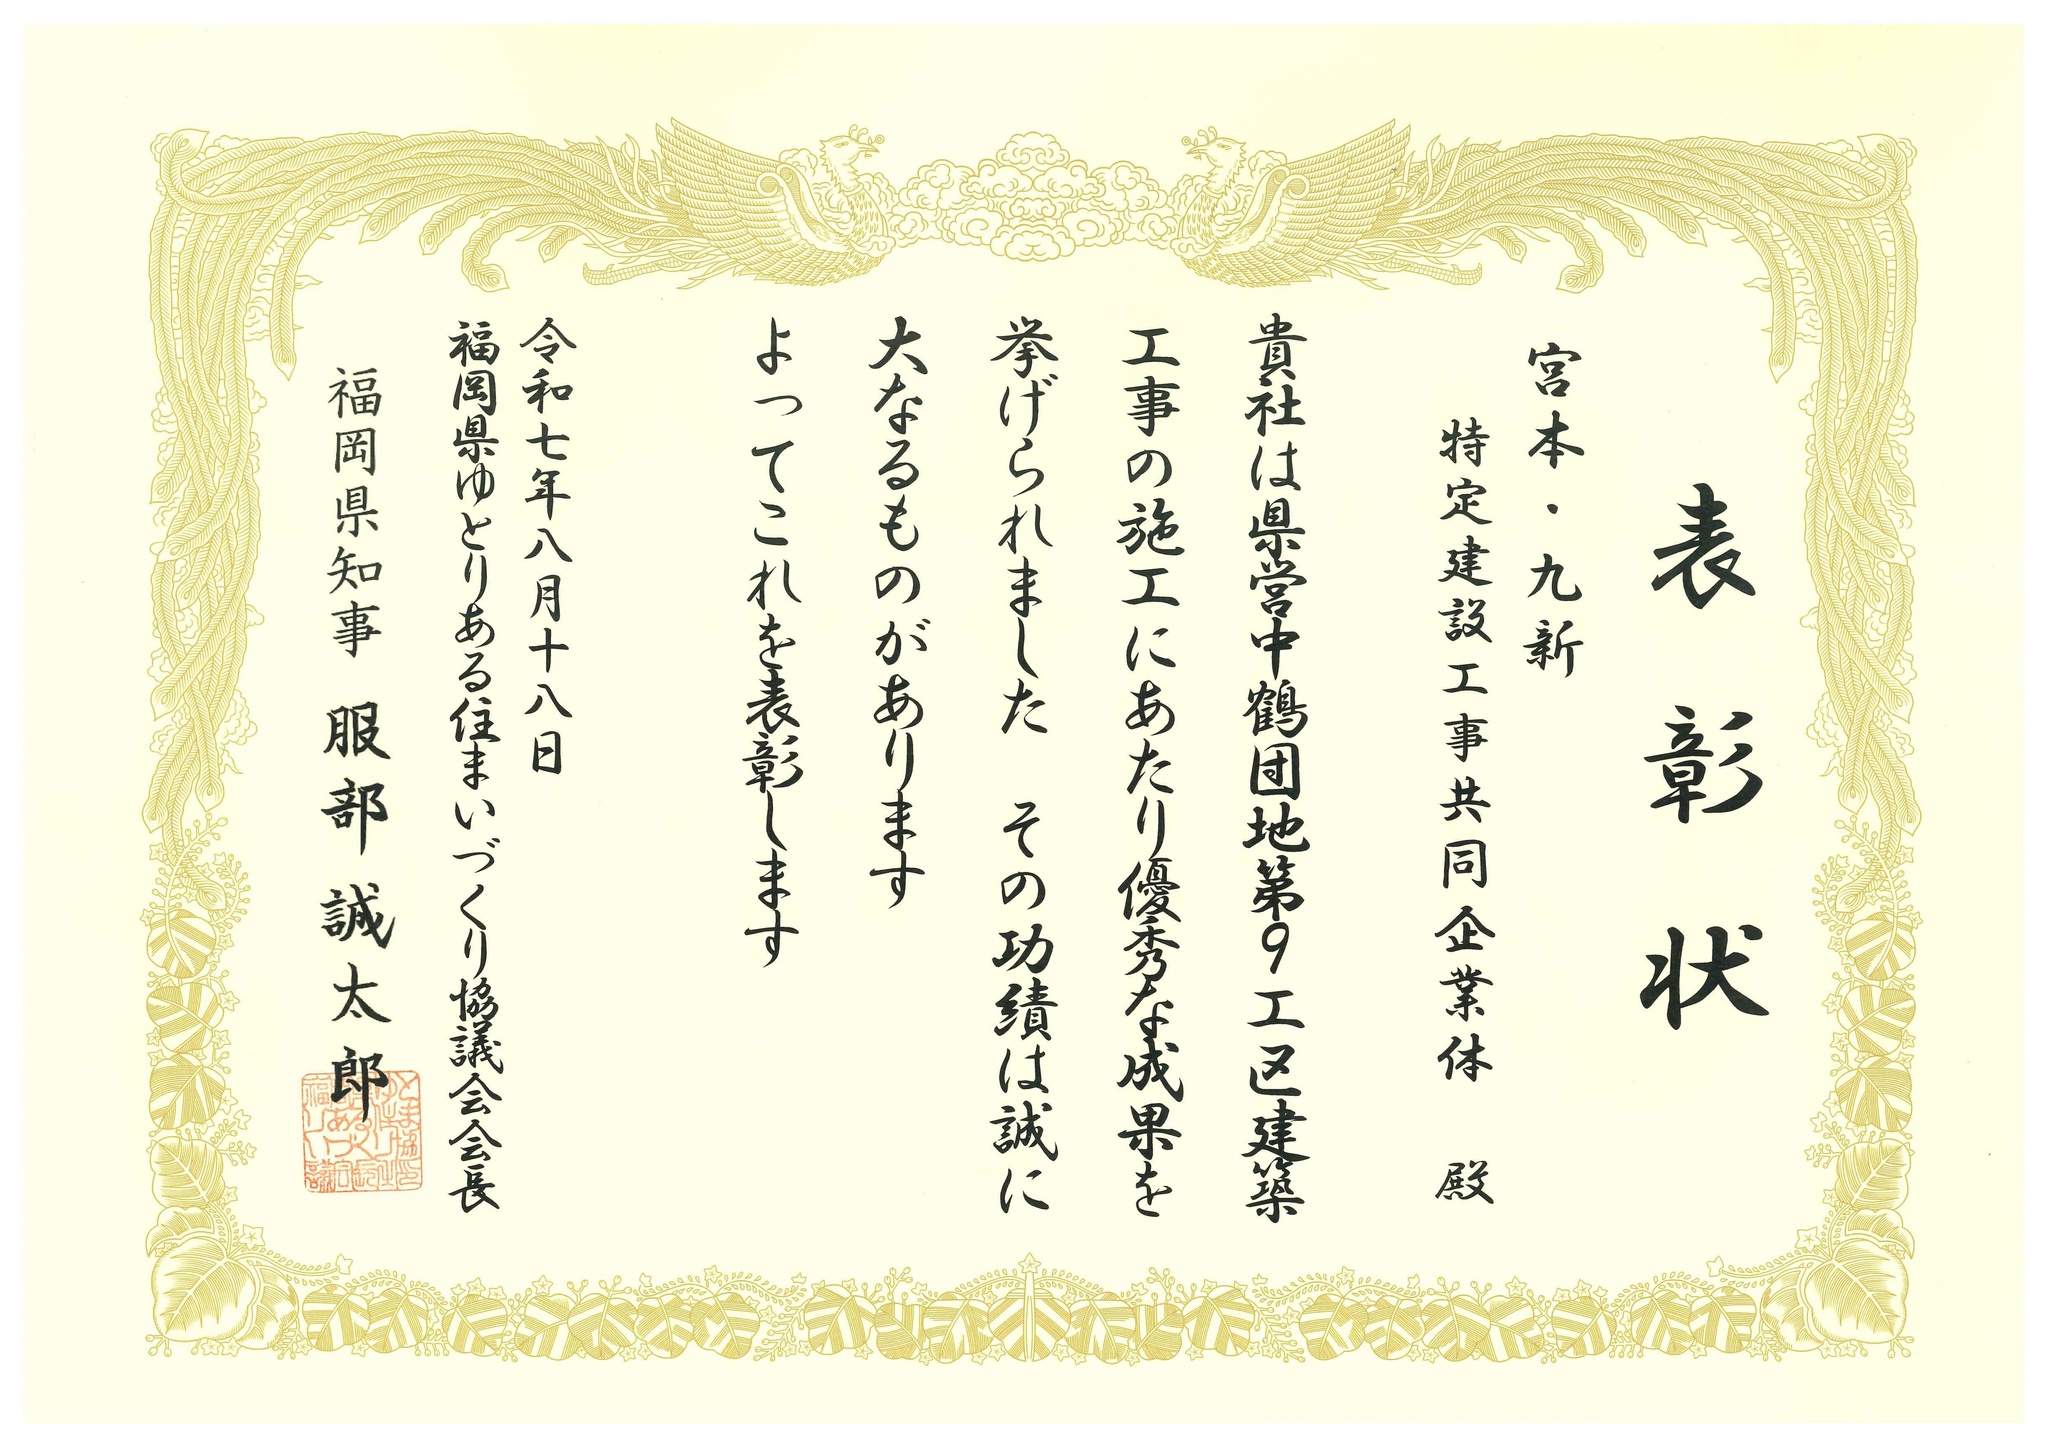 表彰状
宮本・九新
特定建設工事共同企業体 殿
貴社は県営中鶴団地第9工区建築
工事の施工にあたり優秀な成果を
挙げられました その功績は誠に
大なるものがあります
よってこれを表彰します
令和七年八月十八日
福岡県ゆとりある住まいづくり協議会会長
福岡県知事 服部誠太郎